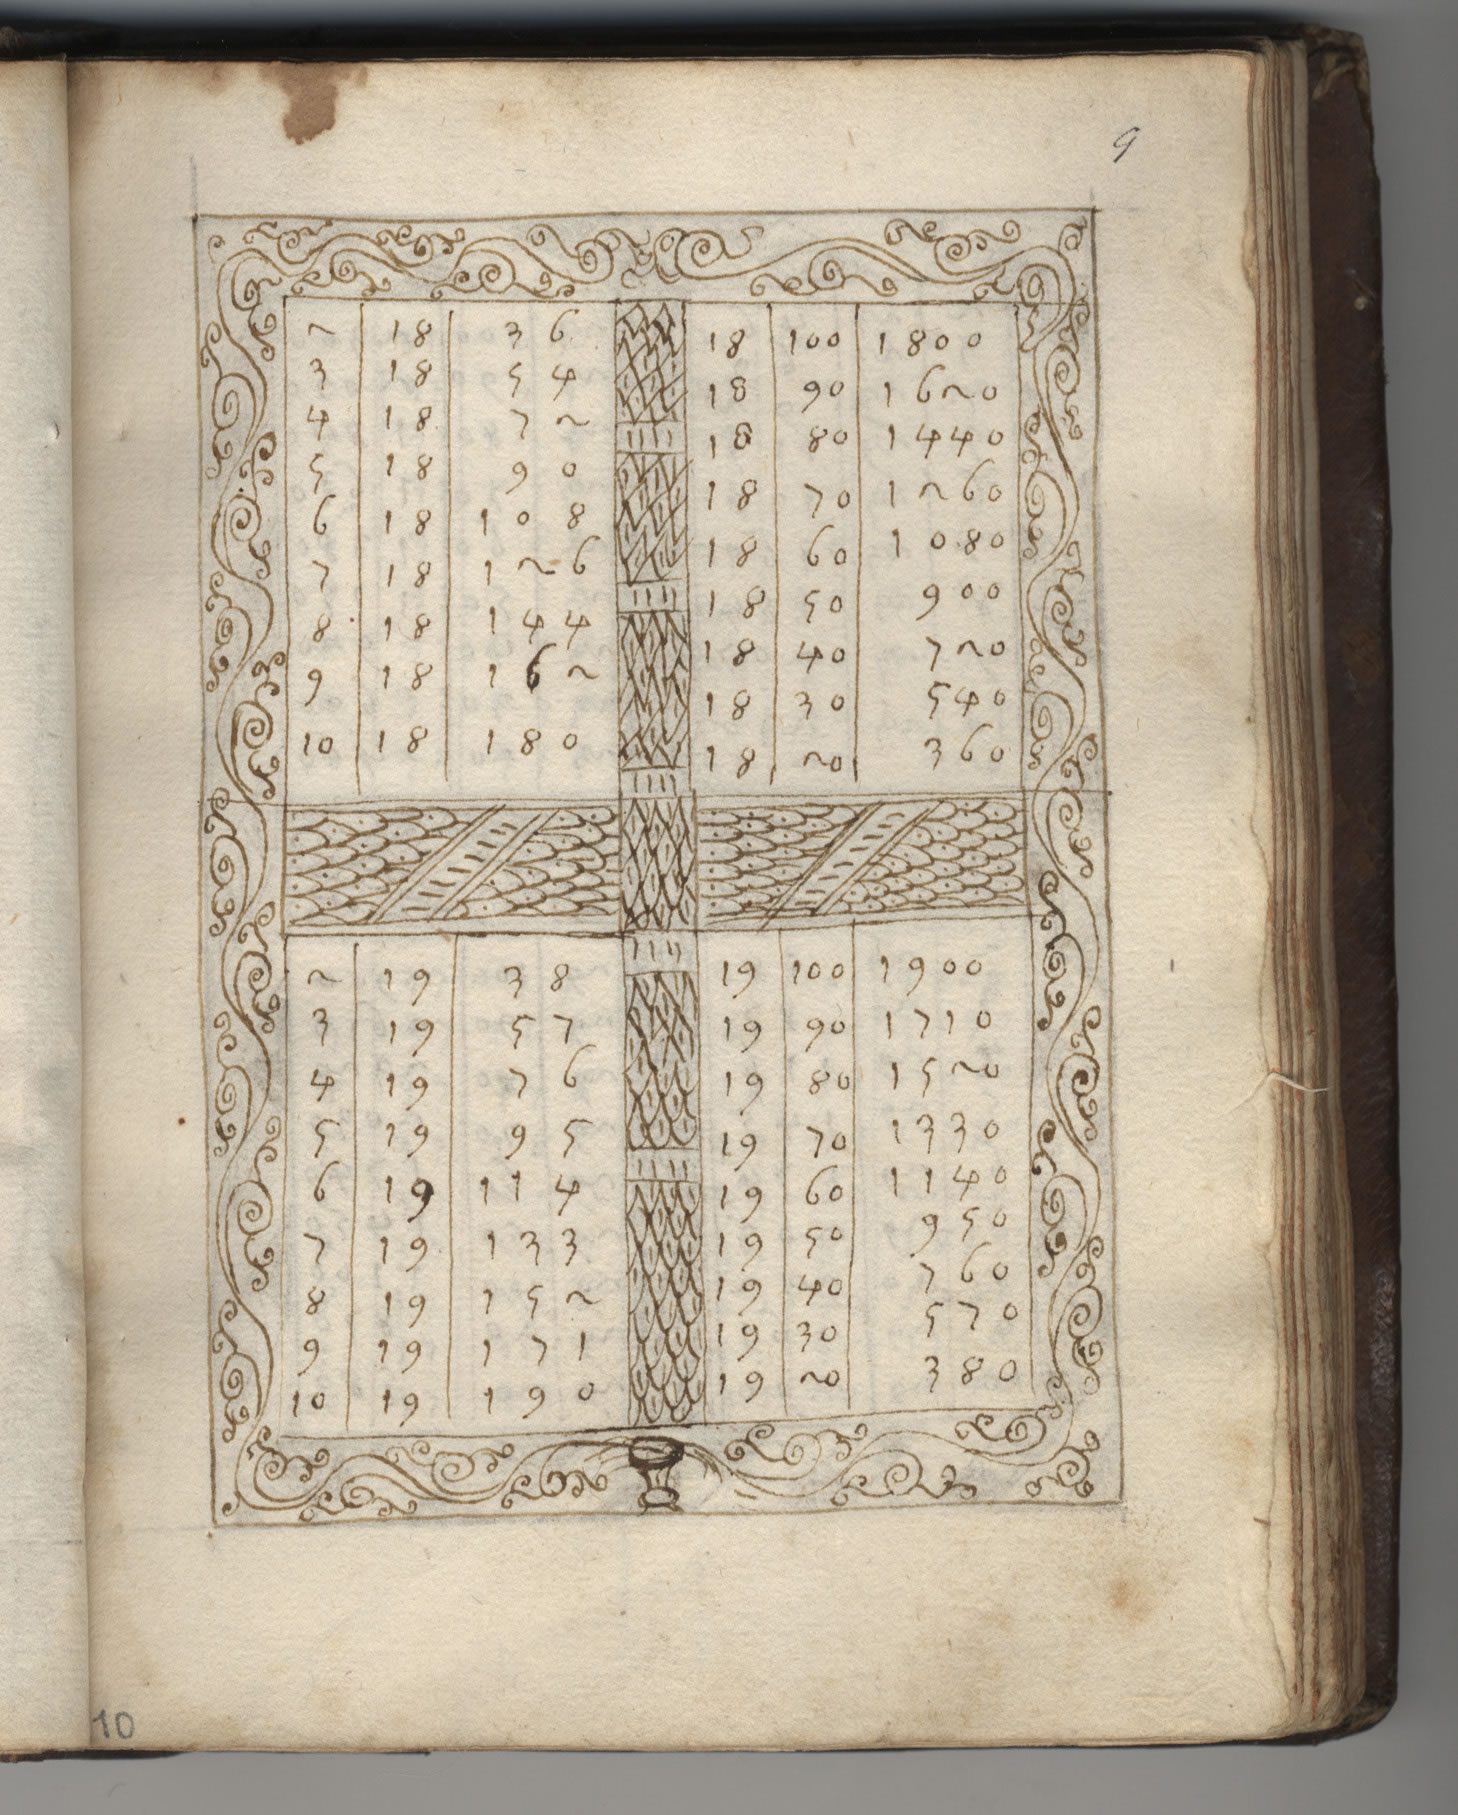 9
2 18 36
3 18 54
4 18 72
5 18 90
6 18 108
7 18 126
8 18 144
9 18 162
10 18 180
18 100 1800
18 90 1620
18 80 1440
18 70 1260
18 60 1080
18 50 900
18 40 720
18 30 540
18 20 360
2 19 38
3 19 57
4 19 76
5 19 95
6 19 114
7 19 133
8 19 152
9 19 171
10 19 190
19 100 1900
19 90 1710
19 80 1520
19 70 1330
19 60 1140
19 50 950
19 40 760
19 30 570
19 20 380
10